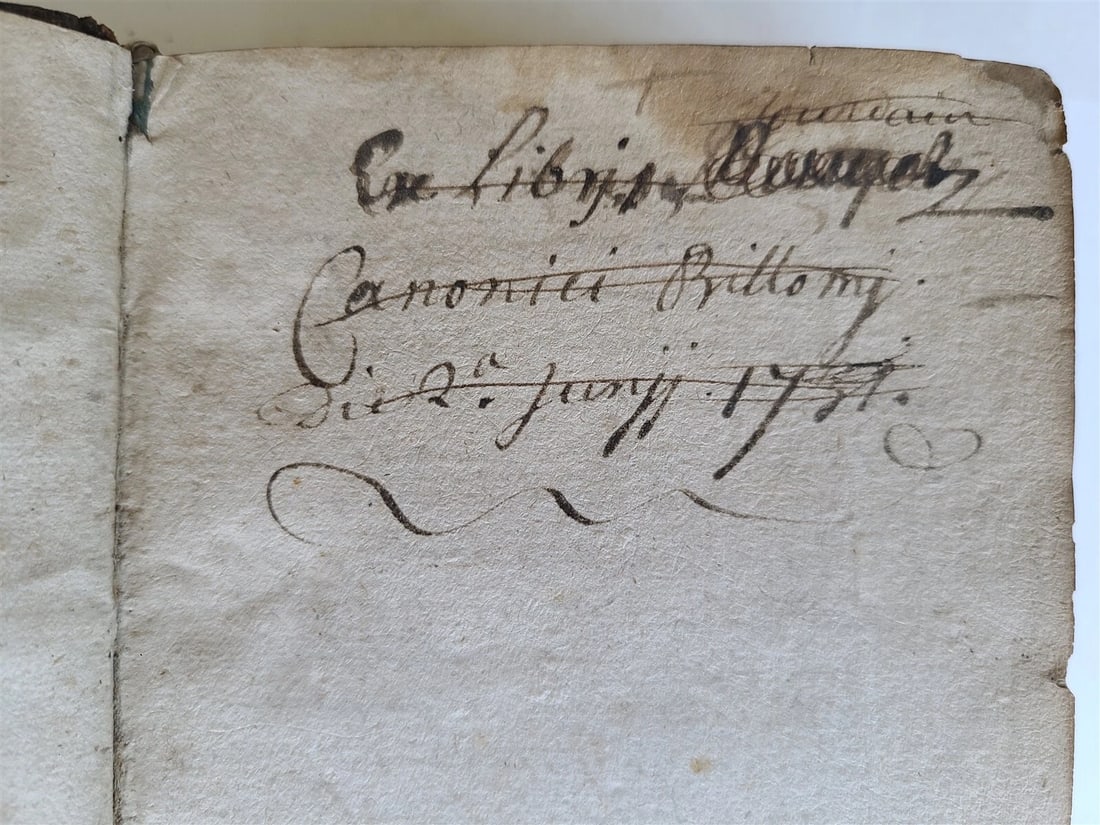 Jourdain
Ex Librijs
Canonici Billomj.
Die 2.a Junij 1751.